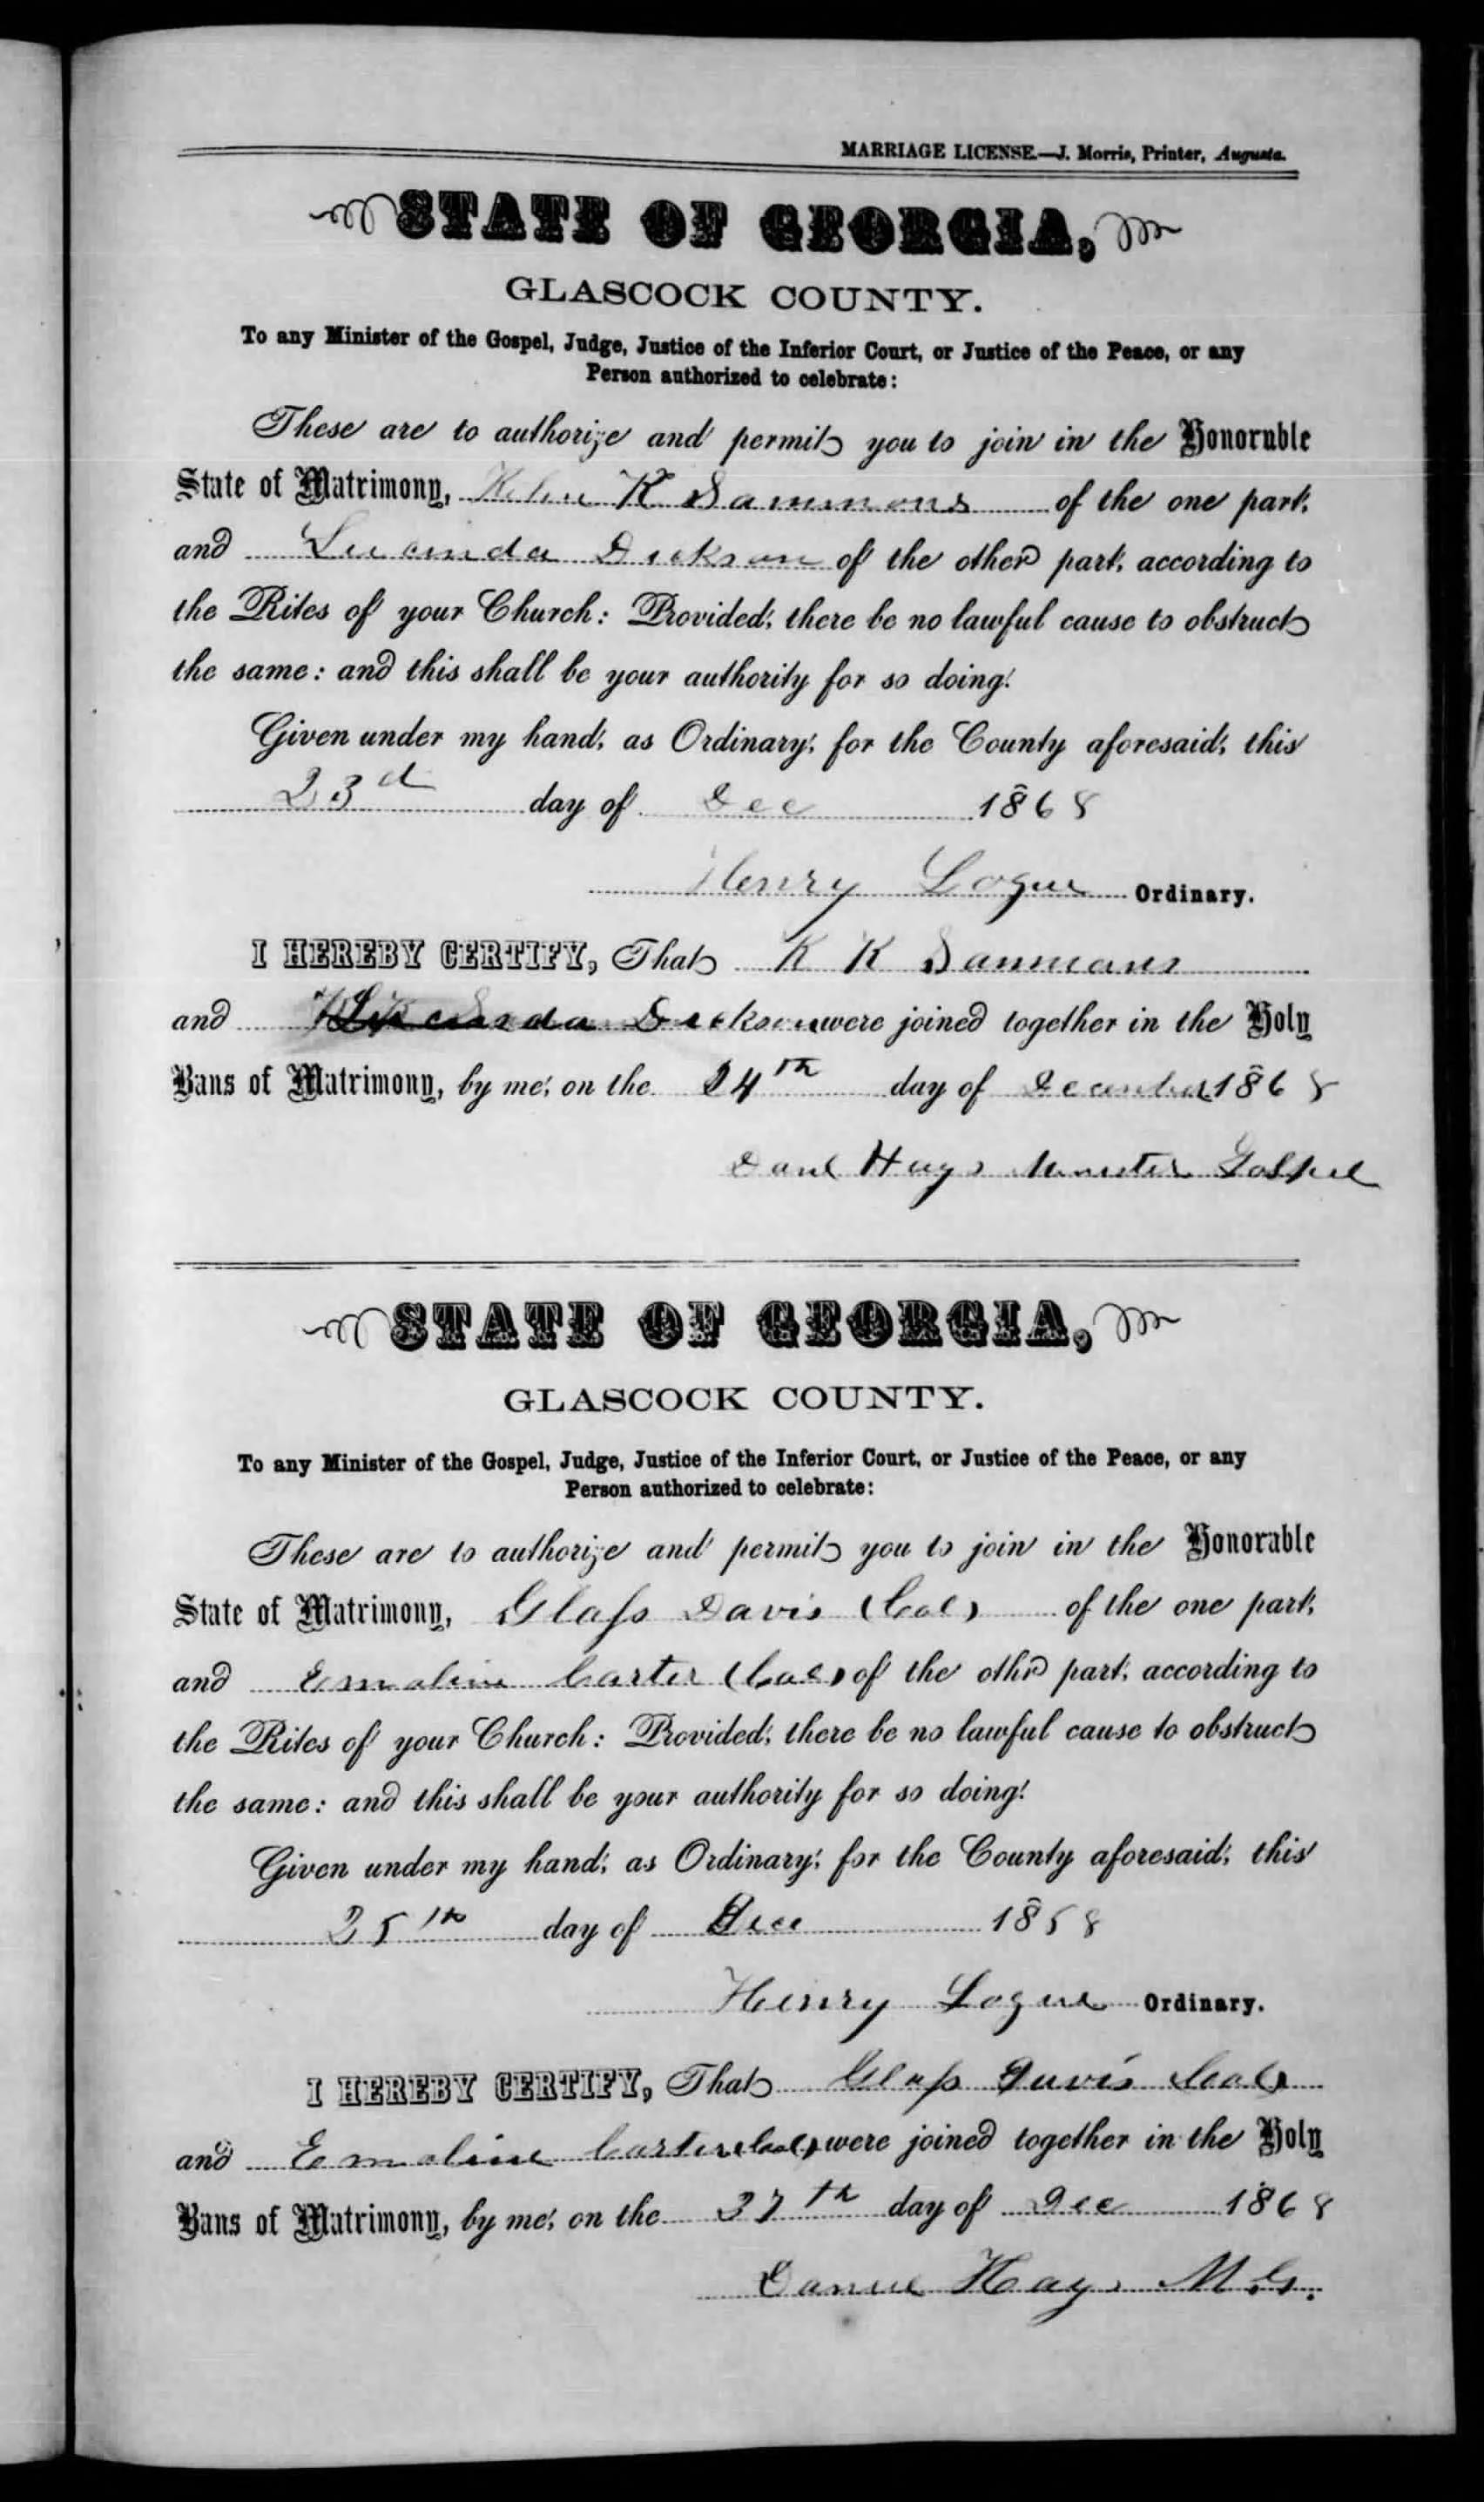 MARRIAGE LICENSE.—J. Morris, Printer, Augusta.
STATE OF GEORGIA,
GLASCOCK COUNTY.
To any Minister of the Gospel, Judge, Justice of the Inferior Court, or Justice of the Peace, or any
Person authorized to celebrate:
These are to authorize and permit you to join in the Honorable
State of Matrimony, K Sammons of the one part,
and Lucinda Dickson of the other part, according to
the Rites of your Church: Provided, there be no lawful cause to obstruct
the same: and this shall be your authority for so doing.
Given under my hand, as Ordinary, for the County aforesaid, this
23d day of Dec 1868
Henry Logue Ordinary.
I HEREBY CERTIFY, That K K Sammons
and Lucinda Dickson were joined together in the Holy
Bans of Matrimony, by me, on the 24th day of December 1868
Danl Hays Minister Gospel
STATE OF GEORGIA,
GLASCOCK COUNTY.
To any Minister of the Gospel, Judge, Justice of the Inferior Court, or Justice of the Peace, or any
Person authorized to celebrate:
These are to authorize and permit you to join in the Honorable
State of Matrimony, Glass Davis (Col) of the one part,
and Emaline Carter (Col) of the othr part, according to
the Rites of your Church: Provided, there be no lawful cause to obstruct
the same: and this shall be your authority for so doing.
Given under my hand, as Ordinary, for the County aforesaid, this
25th day of Dec 1858
Henry Logue Ordinary.
I HEREBY CERTIFY, That Glass Davis (Col)
and Emaline Carter (Col) were joined together in the Holy
Bans of Matrimony, by me, on the 27th day of Dec 1868
Daniel Hays M.G.